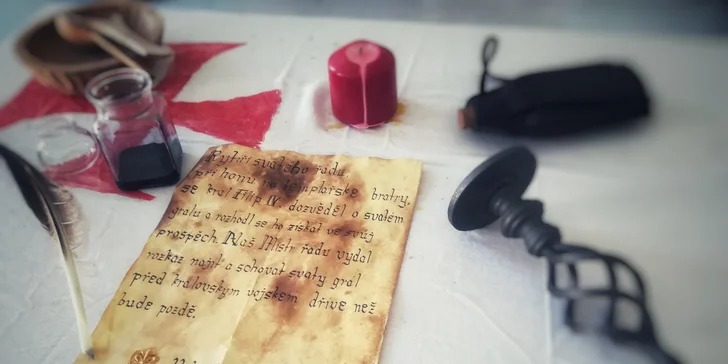 Rytíři svatého řadu,
při honu na templářské bratry,
se král Filip IV. dozvěděl o svatém
grálu a rozhodl se ho získat ve svůj
prospěch. Náš Mistr řadu vydal
rozkaz najít a schovat svatý grál
před královským vojskem dříve než
bude pozdě.